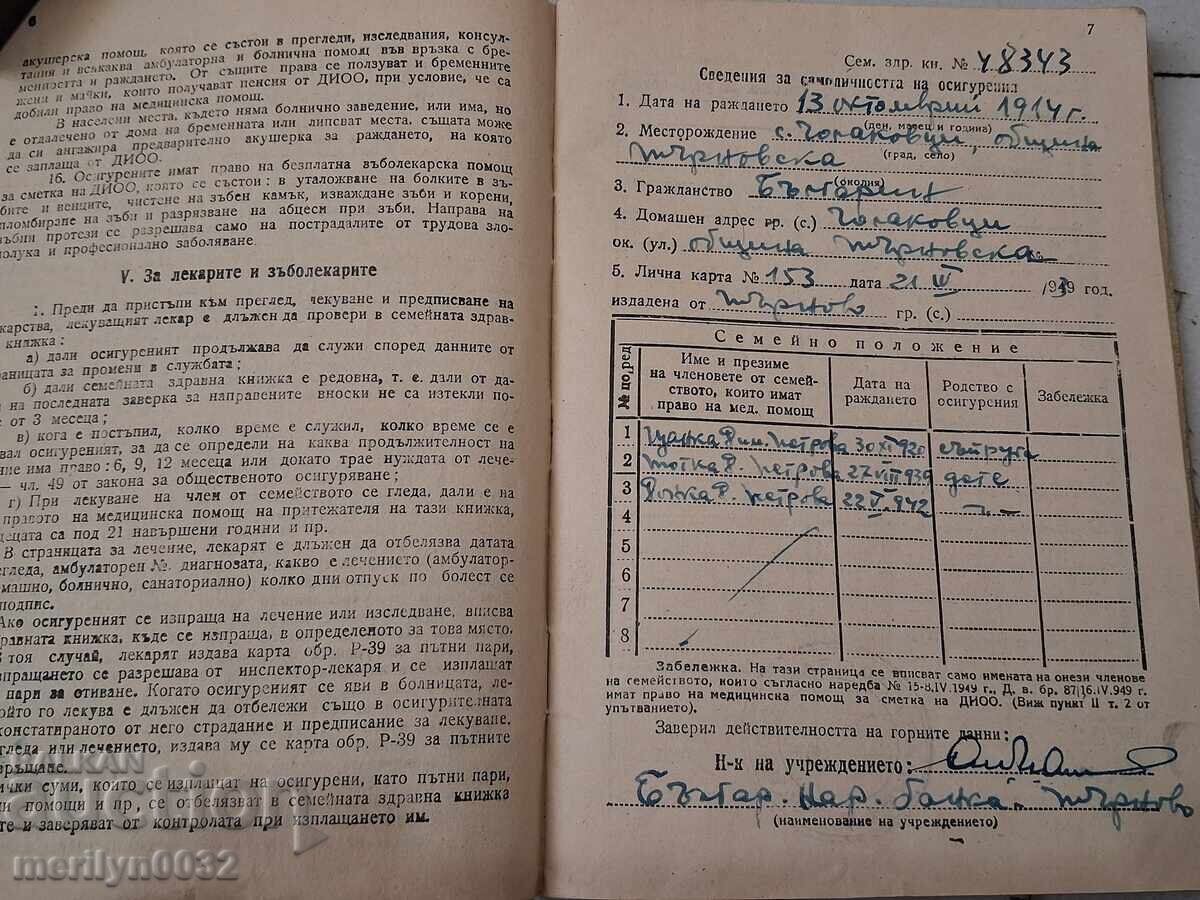 6
акушерска помощ, която се състои в прегледи, изследвания, консул-
тации и всякаква амбулаторна и болнична помощ във връзка с бре-
менността и раждането. От същите права се ползуват и бременните
жени и майки, които получават пенсия от ДИОО, при условие, че са
добили право на медицинска помощ.
В населени места, където няма болнично заведение, или има, но
е отдалечено от дома на бременната или липсват места, същата може
да си ангажира предварително акушерка за раждането, на която
се заплаща от ДИОО.
16. Осигурените имат право на безплатна зъболекарска помощ
за сметка на ДИОО, която се състои: в уталожване на болките в зъ-
бите и венците, чистене на зъбен камък, изваждане зъби и корени,
пломбиране на зъби и разрязване на абцеси при зъби. Направа на
зъбни протези се разрешава само на пострадалите от трудова зло-
полука и професионално заболяване.
V. За лекарите и зъболекарите
1. Преди да пристъпи към преглед, лекуване и предписване на
карства, лекуващият лекар е длъжен да провери в семейната здрав-
книжка:
а) дали осигуреният продължава да служи според данните от
раницата за промени в службата;
б) дали семейната здравна книжка е редовна, т. е. дали от да-
на последната заверка за направените вноски не са изтекли по-
е от 3 месеца;
в) кога е постъпил, колко време е служил, колко време се е
вал осигуреният, за да се определи на каква продължителност на
ние има право: 6, 9, 12 месеца или докато трае нуждата от лече-
— чл. 49 от закона за общественото осигуряване;
г) При лекуване на член от семейството се гледа, дали е на
правото на медицинска помощ на притежателя на тази книжка,
децата са под 21 навършени години и пр.
В страницата за лечение, лекарят е длъжен да отбелязва датата
егледа, амбулаторен №, диагнозата, какво е лечението (амбулатор-
машно, болнично, санаториално) колко дни отпуск по болест се
подпис.
Ако осигуреният се изпраща на лечение или изследване, вписва
равната книжка, къде се изпраща, в определеното за това място.
тоя случай, лекарят издава карта обр. Р-39 за пътни пари,
изпращането се разрешава от инспектор-лекаря и се изплащат
пари за отиване. Когато осигуреният се яви в болницата, ле-
който го лекува е длъжен да отбележи също в осигурителната
констатираното от него страдание и предписание за лекуване.
гледа или лечението, издава му се карта обр. Р-39 за пътните
връщане.
ички суми, които се изплащат на осигурени, като пътни пари,
ни помощи и пр., се отбелязват в семейната здравна книжка
те и заверяват от контролата при изплащането им.
merilyn0032
7
Сем. здр. кн. № 48343
Сведения за самоличността на осигурения
1. Дата на раждането 13 октомврий 1914 г.
(ден, месец и година)
2. Месторождение с. Чолаковци, община
(град, село)
Търновска
(околия)
3. Гражданство Българин
4. Домашен адрес гр. (с.) Чолаковци
ок. (ул.) община Търновска
5. Лична карта № 153 дата 21 VI 1949 год.
издадена от Търново гр. (с.)
Семейно положение
№ по ред
Име и презиме на членовете от семейството, които имат право на мед. помощ
Дата на раждането
Родство с осигурения
Забележка
1 Цанка Дим. Петрова 30 XI 920 съпруга
2 Тотка Д. Петрова 27 VIII 939 дете
3 Донка Д. Петрова 22 V 942 –„–
4
5
6
7
8
Забележка. На тази страница се вписват само имената на онези членове
на семейството, които съгласно наредба № 15-8.IV.1949 г., Д. в. бр. 87|16.IV.949 г.
имат право на медицинска помощ за сметка на ДИОО. (Виж пункт II т. 2 от
упътването).
Заверил действителността на горните данни:
Н-к на учреждението:
Българ. нар. банка – Търново
(наименование на учреждението)